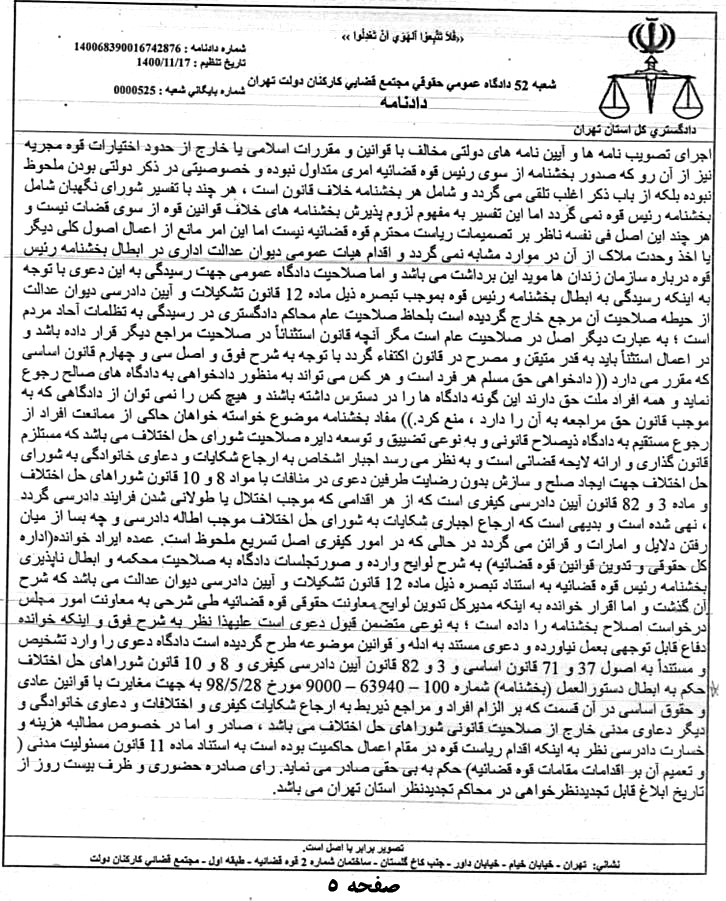 «فَلَا تَتَّبِعُوا الْهَوَىٰ أَنْ تَعْدِلُوا»
شماره دادنامه : 140068390016742876
تاریخ تنظیم : 1400/11/17
شماره بایگانی شعبه : 0000525
شعبه 52 دادگاه عمومي حقوقي مجتمع قضایي کارکنان دولت تهران
دادنامه
دادگستري کل استان تهران
اجرای تصویب نامه ها و آیین نامه های دولتی مخالف با قوانین و مقررات اسلامی یا خارج از حدود اختیارات قوه مجریه
نیز از آن رو که صدور بخشنامه از سوی رئیس قوه قضائیه امری متداول نبوده و خصوصیتی در ذکر دولتی بودن ملحوظ
نبوده بلکه از باب ذکر اغلب تلقی می گردد و شامل هر بخشنامه خلاف قانون است ، هر چند با تفسیر شورای نگهبان شامل
بخشنامه رئیس قوه نمی گردد اما این تفسیر به مفهوم لزوم پذیرش بخشنامه های خلاف قوانین قوه از سوی قضات نیست و
هر چند این اصل فی نفسه ناظر بر تصمیمات ریاست محترم قوه قضائیه نیست اما این امر مانع از اعمال اصول کلی دیگر
یا اخذ وحدت ملاک از آن در موارد مشابه نمی گردد و اقدام هیات عمومی دیوان عدالت اداری در ابطال بخشنامه رئیس
قوه درباره سازمان زندان ها موید این برداشت می باشد و اما صلاحیت دادگاه عمومی جهت رسیدگی به این دعوی با توجه
به اینکه رسیدگی به ابطال بخشنامه رئیس قوه بموجب تبصره ذیل ماده 12 قانون تشکیلات و آیین دادرسی دیوان عدالت
از حیطه صلاحیت آن مرجع خارج گردیده است بلحاظ صلاحیت عام محاکم دادگستری در رسیدگی به تظلمات آحاد مردم
است ؛ به عبارت دیگر اصل در صلاحیت عام است مگر آنچه قانون استثنائاً در صلاحیت مراجع دیگر قرار داده باشد و
در اعمال استثنأ باید به قدر متیقن و مصرح در قانون اکتفاء گردد با توجه به شرح فوق و اصل سی و چهارم قانون اساسی
که مقرر می دارد (( دادخواهی حق مسلم هر فرد است و هر کس می تواند به منظور دادخواهی به دادگاه های صالح رجوع
نماید و همه افراد ملت حق دارند این گونه دادگاه ها را در دسترس داشته باشند و هیچ کس را نمی توان از دادگاهی که به
موجب قانون حق مراجعه به آن را دارد ، منع کرد.)) مفاد بخشنامه موضوع خواسته خواهان حاکی از ممانعت افراد از
رجوع مستقیم به دادگاه ذیصلاح قانونی و به نوعی تضییق و توسعه دایره صلاحیت شورای حل اختلاف می باشد که مستلزم
قانون گذاری و ارائه لایحه قضائی است و به نظر می رسد اجبار اشخاص به ارجاع شکایات و دعاوی خانوادگی به شورای
حل اختلاف جهت ایجاد صلح و سازش بدون رضایت طرفین دعوی در منافات با مواد 8 و 10 قانون شوراهای حل اختلاف
و ماده 3 و 82 قانون آیین دادرسی کیفری است که از هر اقدامی که موجب اختلال یا طولانی شدن فرایند دادرسی گردد
، نهی شده است و بدیهی است که ارجاع اجباری شکایات به شورای حل اختلاف موجب اطاله دادرسی و چه بسا از میان
رفتن دلایل و امارات و قرائن می گردد در حالی که در امور کیفری اصل تسریع ملحوظ است. عمده ایراد خوانده(اداره
کل حقوقی و تدوین قوانین قوه قضائیه) به شرح لوایح وارده و صورتجلسات دادگاه به صلاحیت محکمه و ابطال ناپذیری
بخشنامه رئیس قوه قضائیه به استناد تبصره ذیل ماده 12 قانون تشکیلات و آیین دادرسی دیوان عدالت می باشد که شرح
آن گذشت و اما اقرار خوانده به اینکه مدیرکل تدوین لوایح معاونت حقوقی قوه قضائیه طی شرحی به معاونت امور مجلس
درخواست اصلاح بخشنامه را داده است ؛ به نوعی متضمن قبول دعوی است علیهذا نظر به شرح فوق و اینکه خوانده
دفاع قابل توجهی بعمل نیاورده و دعوی مستند به ادله و قوانین موضوعه طرح گردیده است دادگاه دعوی را وارد تشخیص
و مستنداً به اصول 37 و 71 قانون اساسی و 3 و 82 قانون آیین دادرسی کیفری و 8 و 10 قانون شوراهای حل اختلاف
حکم به ابطال دستورالعمل (بخشنامه) شماره 100 – 63940 – 9000 مورخ 98/5/28 به جهت مغایرت با قوانین عادی
و حقوق اساسی در آن قسمت که بر الزام افراد و مراجع ذیربط به ارجاع شکایات کیفری و اختلافات و دعاوی خانوادگی و
دیگر دعاوی مدنی خارج از صلاحیت قانونی شوراهای حل اختلاف می باشد ، صادر و اما در خصوص مطالبه هزینه و
خسارت دادرسی نظر به اینکه اقدام ریاست قوه در مقام اعمال حاکمیت بوده است به استناد ماده 11 قانون مسئولیت مدنی (
و تعمیم آن بر اقدامات مقامات قوه قضائیه) حکم به بی حقی صادر می نماید. رای صادره حضوری و ظرف بیست روز از
تاریخ ابلاغ قابل تجدیدنظرخواهی در محاکم تجدیدنظر استان تهران می باشد.
تصویر برابر با اصل است.
نشاني: تهران - خیابان خیام - خیابان داور - جنب کاخ گلستان - ساختمان شماره 2 قوه قضائیه - طبقه اول - مجتمع قضائي کارکنان دولت
صفحه ۵